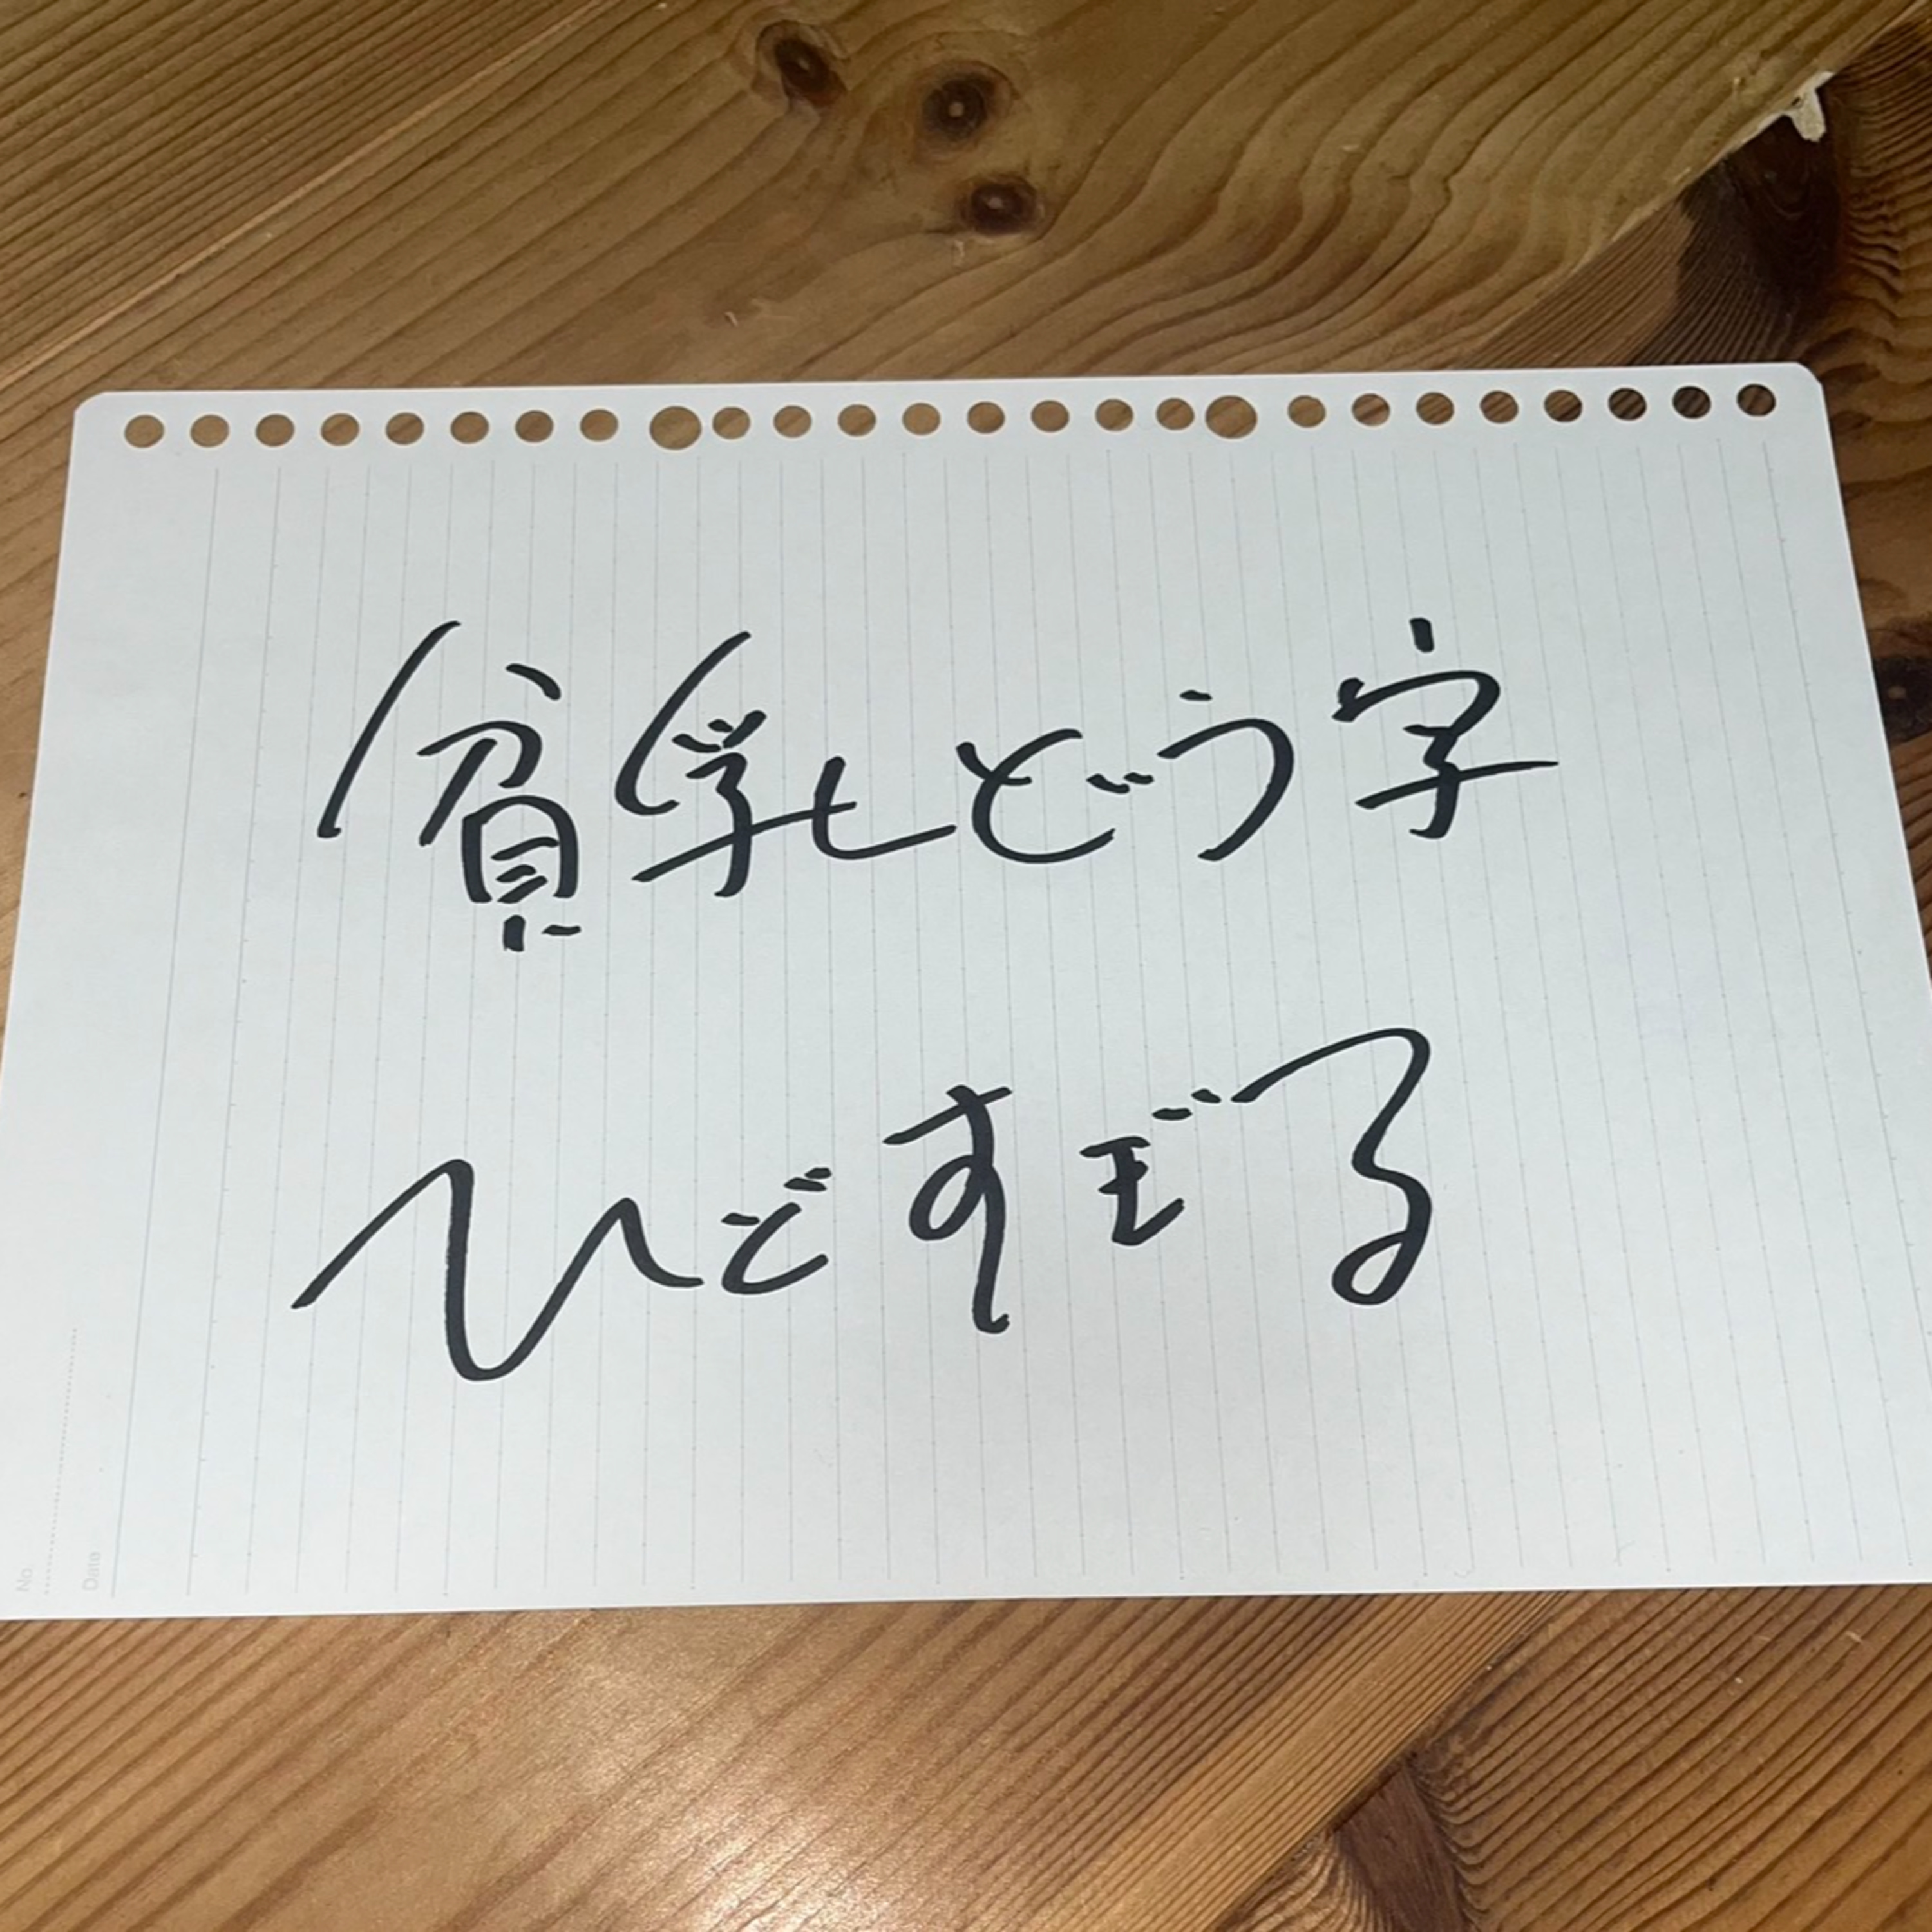 貧乳どう字
ひどすぎる
No.
Date